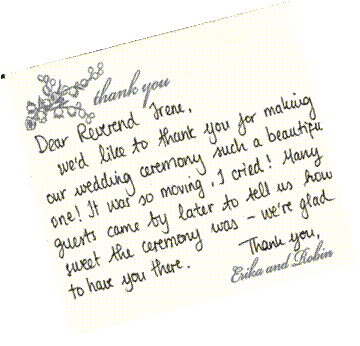 thank you
Dear Reverend Irene,
we'd like to thank you for making
our wedding ceremony such a beautiful
one! It was so moving, I cried! Many
guests came by later to tell us how
sweet the ceremony was – we're glad
to have you there.
Thank you,
Erika and Robin